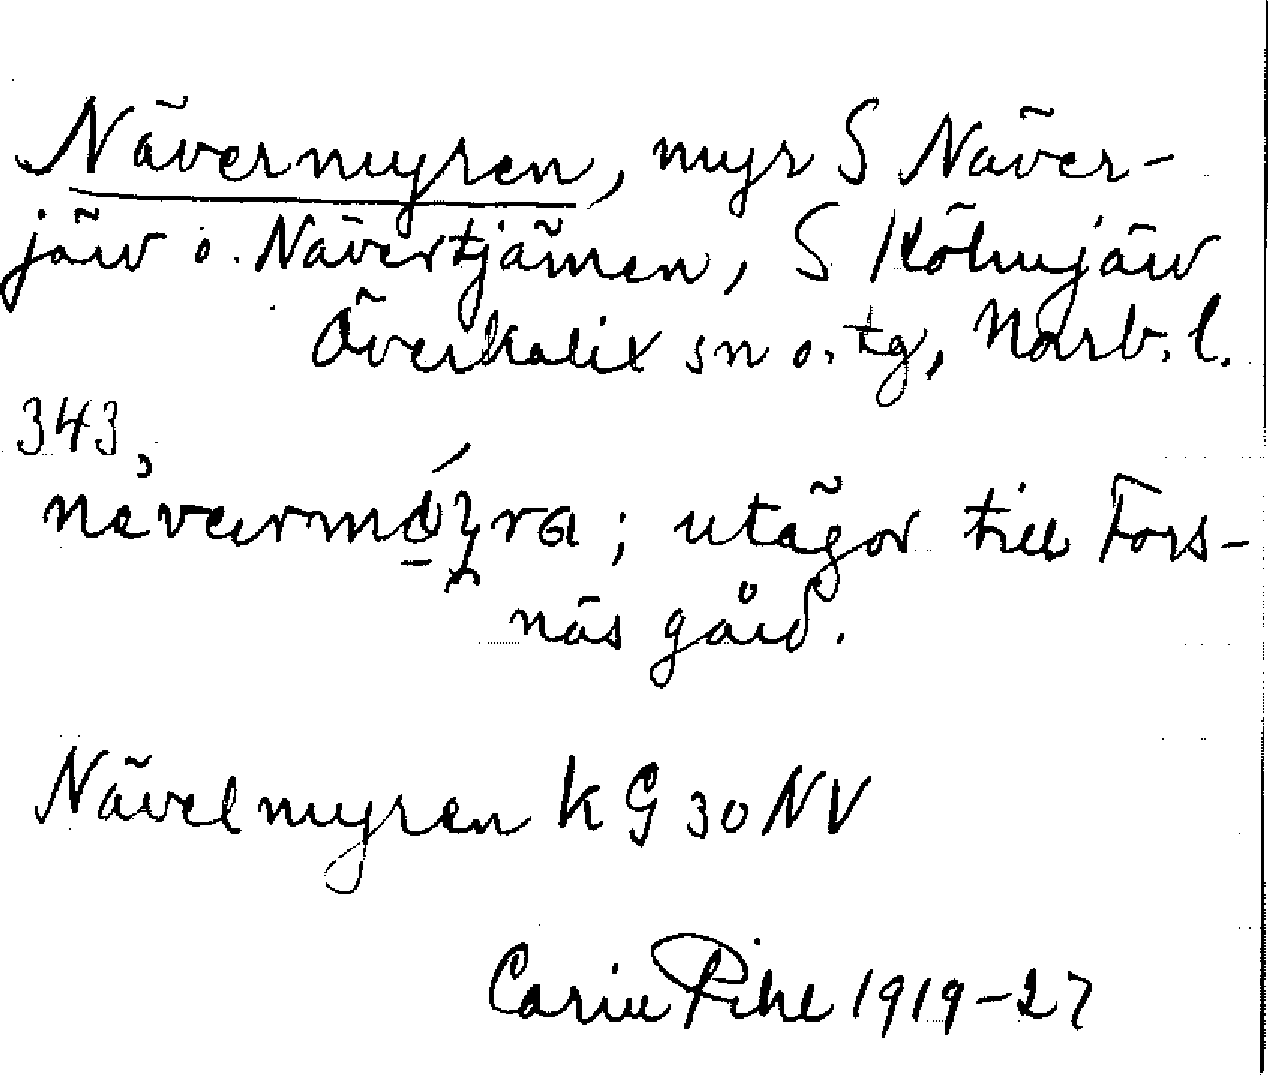 Nävermyren, myr S Näver-
järv o. Nävertjärnen, S Kölmjärv
Överkalix sn o. tg, Norrb. l.
343,
; utägor till Fors-
näs gård.
Nävelmyren KG 30 NV
Carin Pihl 1919-27